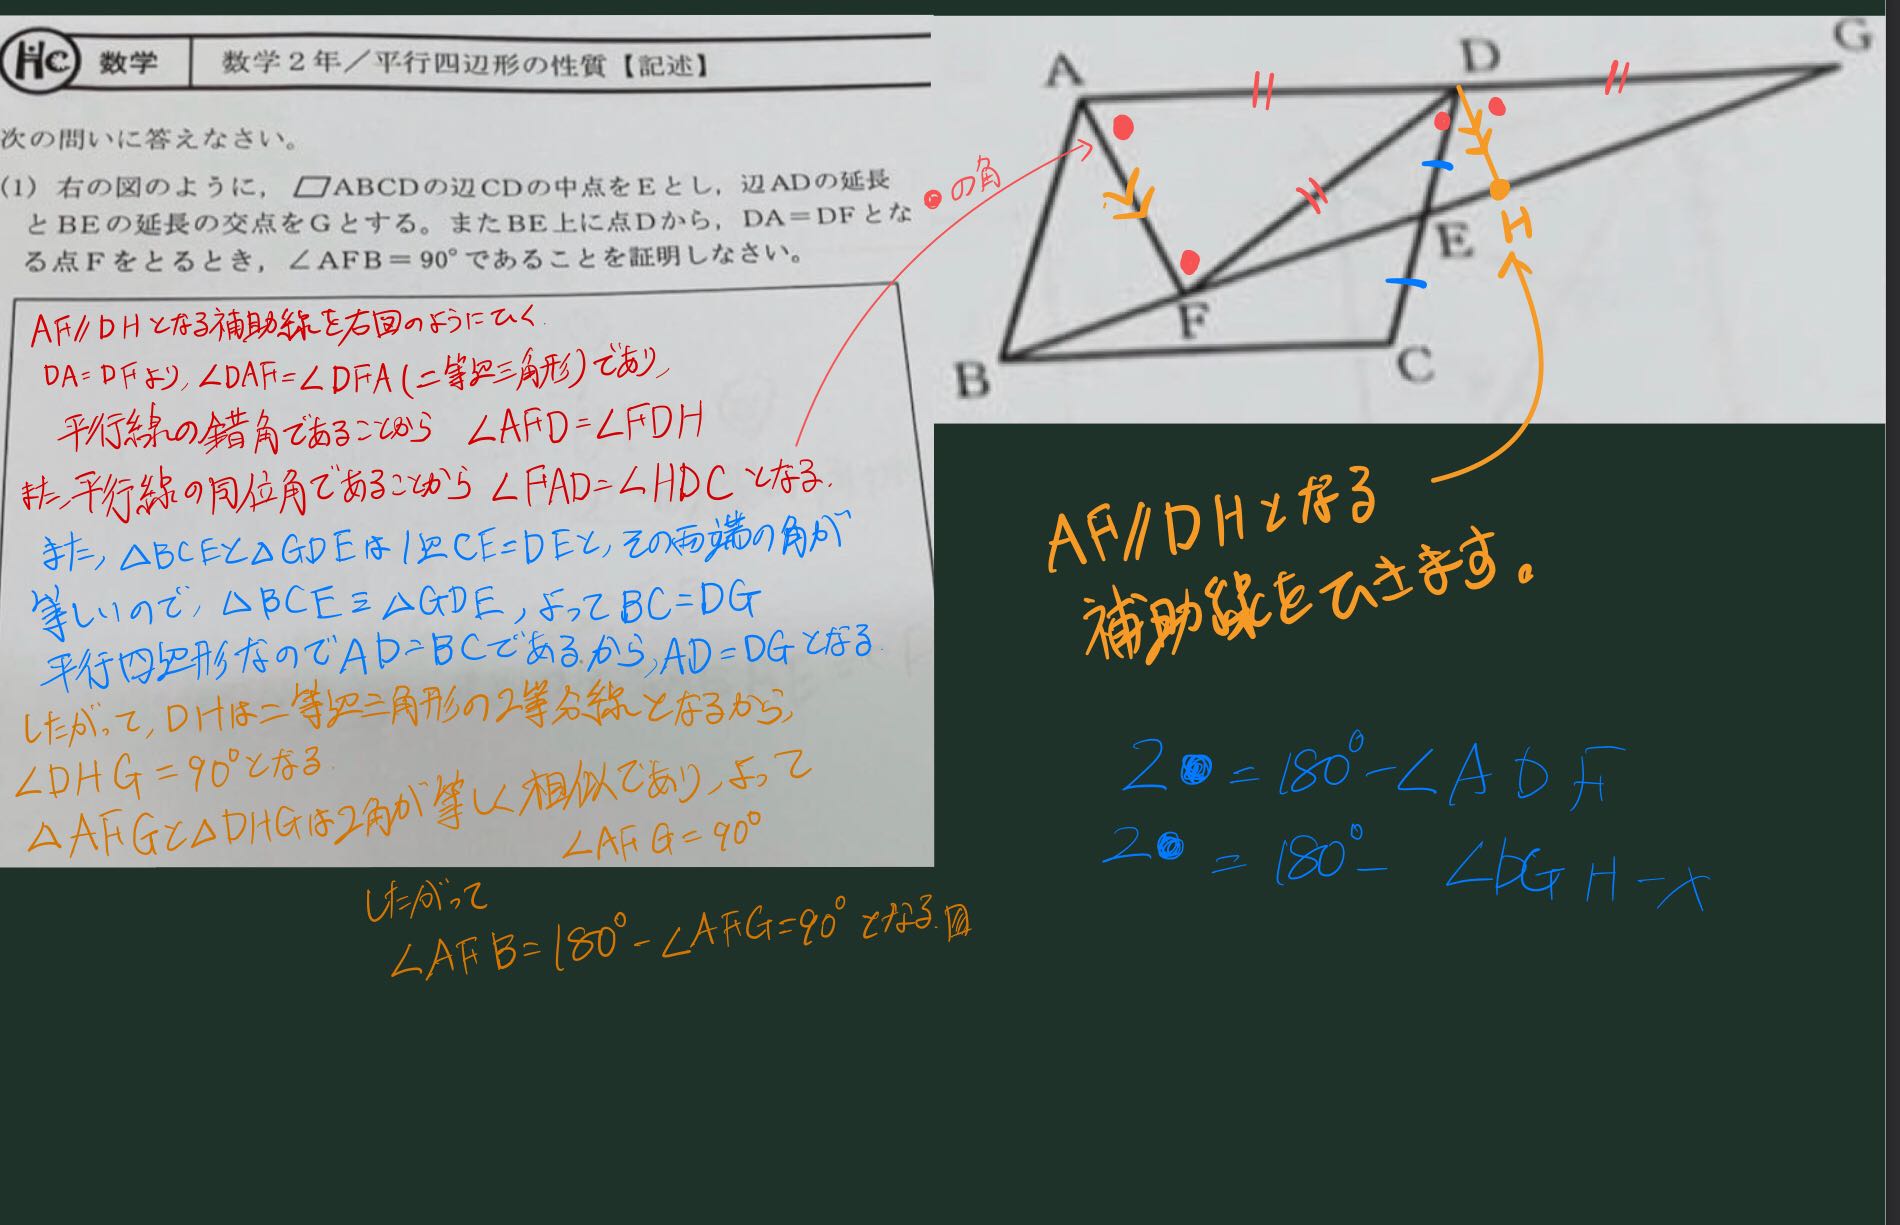 HC 数学 数学2年／平行四辺形の性質【記述】
次の問いに答えなさい。
(1) 右の図のように，▱ABCDの辺CDの中点をEとし，辺ADの延長
とBEの延長の交点をGとする。またBE上に点Dから，DA＝DFとな
る点Fをとるとき，∠AFB＝90°であることを証明しなさい。
AF//DHとなる補助線を右図のようにひく.
DA=DFより,∠DAF=∠DFA(二等辺三角形)であり,
平行線の錯角であることから ∠AFD=∠FDH
また,平行線の同位角であることから ∠FAD=∠HDC となる.
また,△BCEと△GDEは1辺CE=DEと,その両端の角が
等しいので,△BCE≡△GDE,よってBC=DG
平行四辺形なのでAD=BCであるから,AD=DGとなる.
したがって,DHは二等辺三角形の2等分線となるから,
∠DHG=90°となる.
△AFGと△DHGは2角が等しく相似であり,よって
∠AFG=90°
したがって
∠AFB=180°-∠AFG=90°となる.
A
D
G
●の角
H
E
F
B
C
AF//DHとなる
補助線をひきます。
2●=180°-∠ADF
2●=180°-∠DGH-x